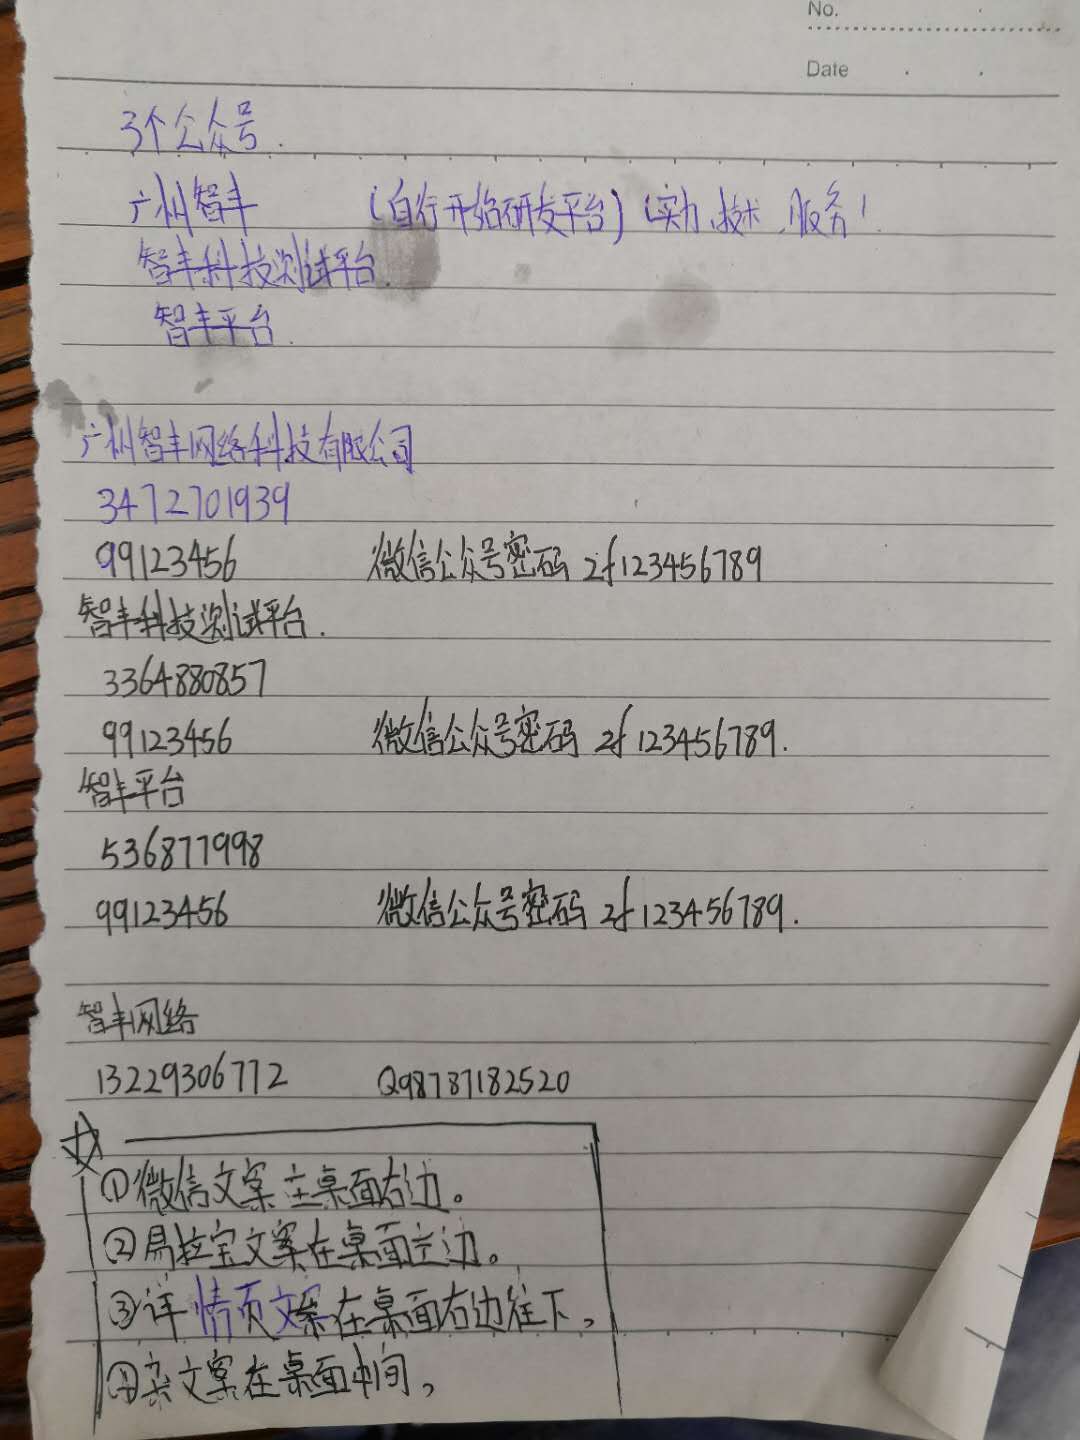 No.
Date
3个公众号.
广州智丰 (自行开始研发平台) (实力、技术、服务!
智丰科技测试平台.
智丰平台.
广州智丰网络科技有限公司
3472701939
99123456 微信公众号密码 zf123456789
智丰科技测试平台.
3364880857
99123456 微信公众号密码 zf123456789.
智丰平台
536877998
99123456 微信公众号密码 zf123456789.
智丰网络
13229306772 Q98787182520
①微信文案在桌面右边。
②易拉宝文案在桌面左边。
③详情页文案在桌面右边往下,
④杂文案在桌面中间,